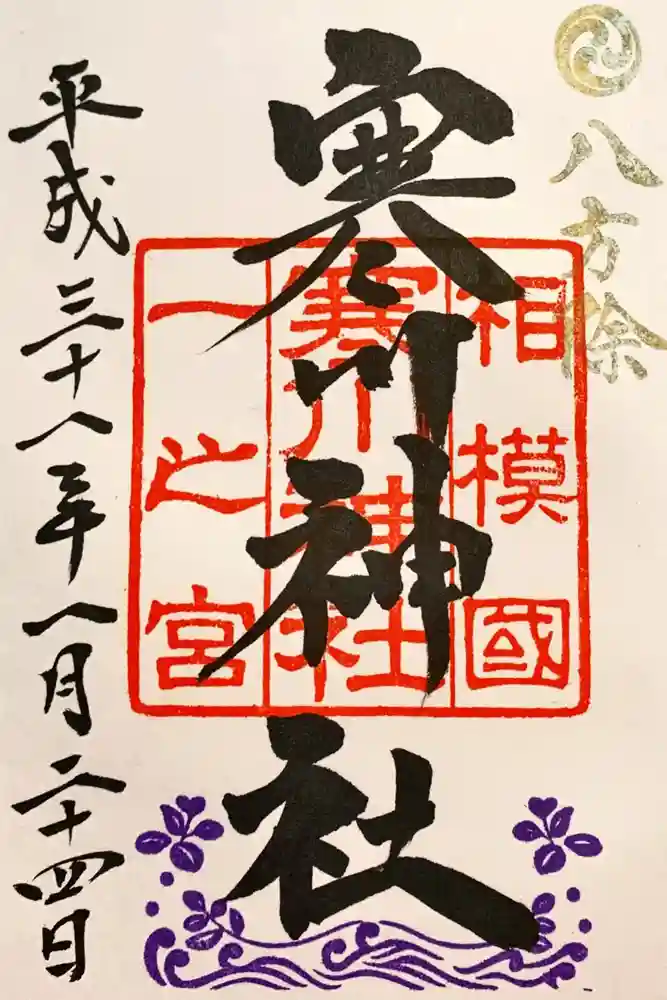 八方除
相模國
寒川神社
寒川神社
一之宮
平成二十八年八月二十四日